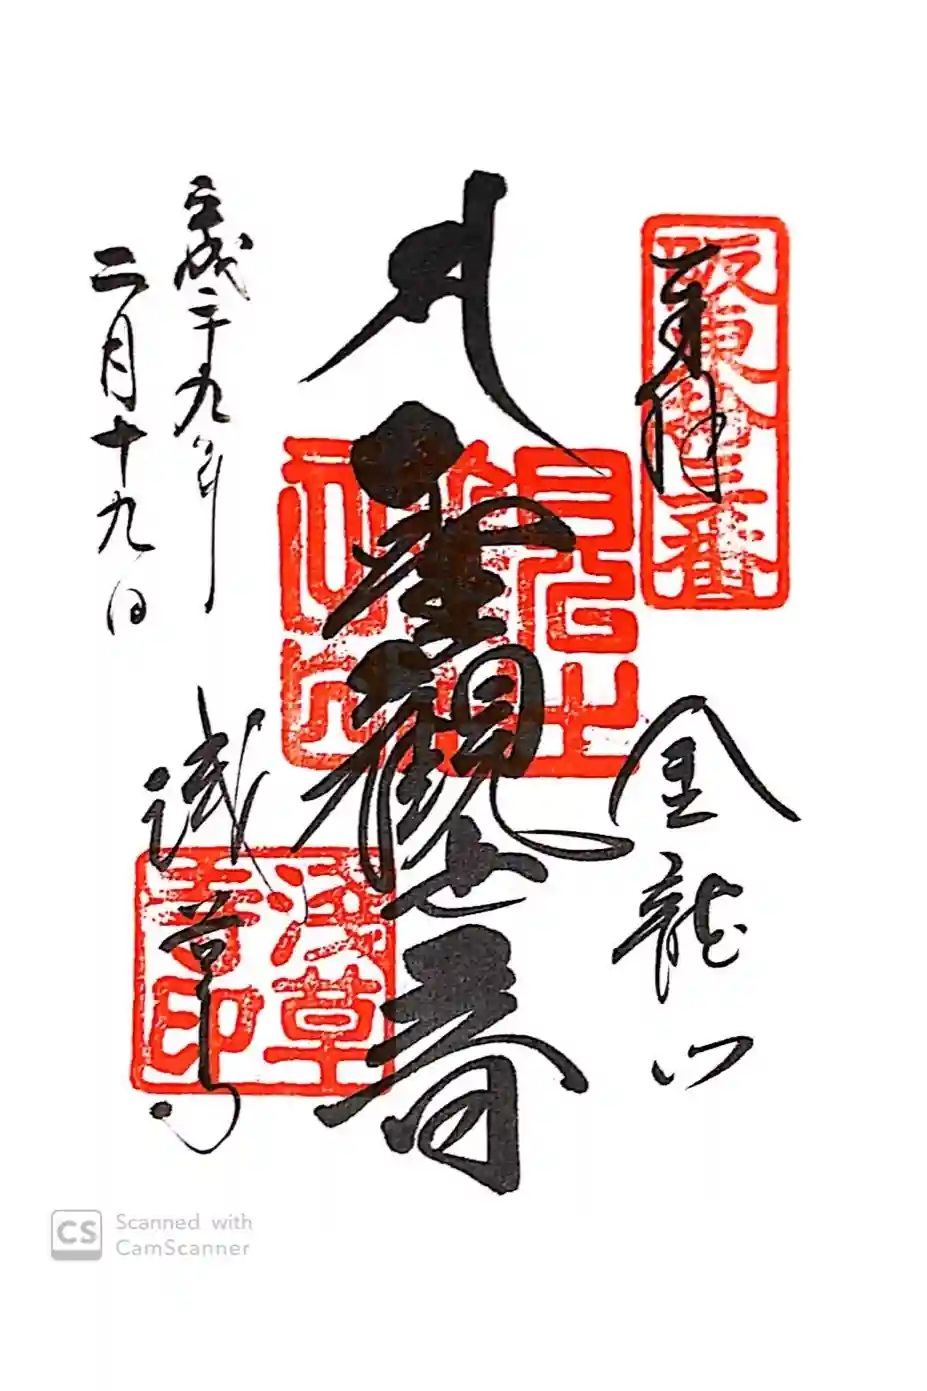 奉拝
阪東十三番
金龍山
聖観世音
浅草寺
浅草寺印
平成二十九年
二月十九日
CS
Scanned with
CamScanner